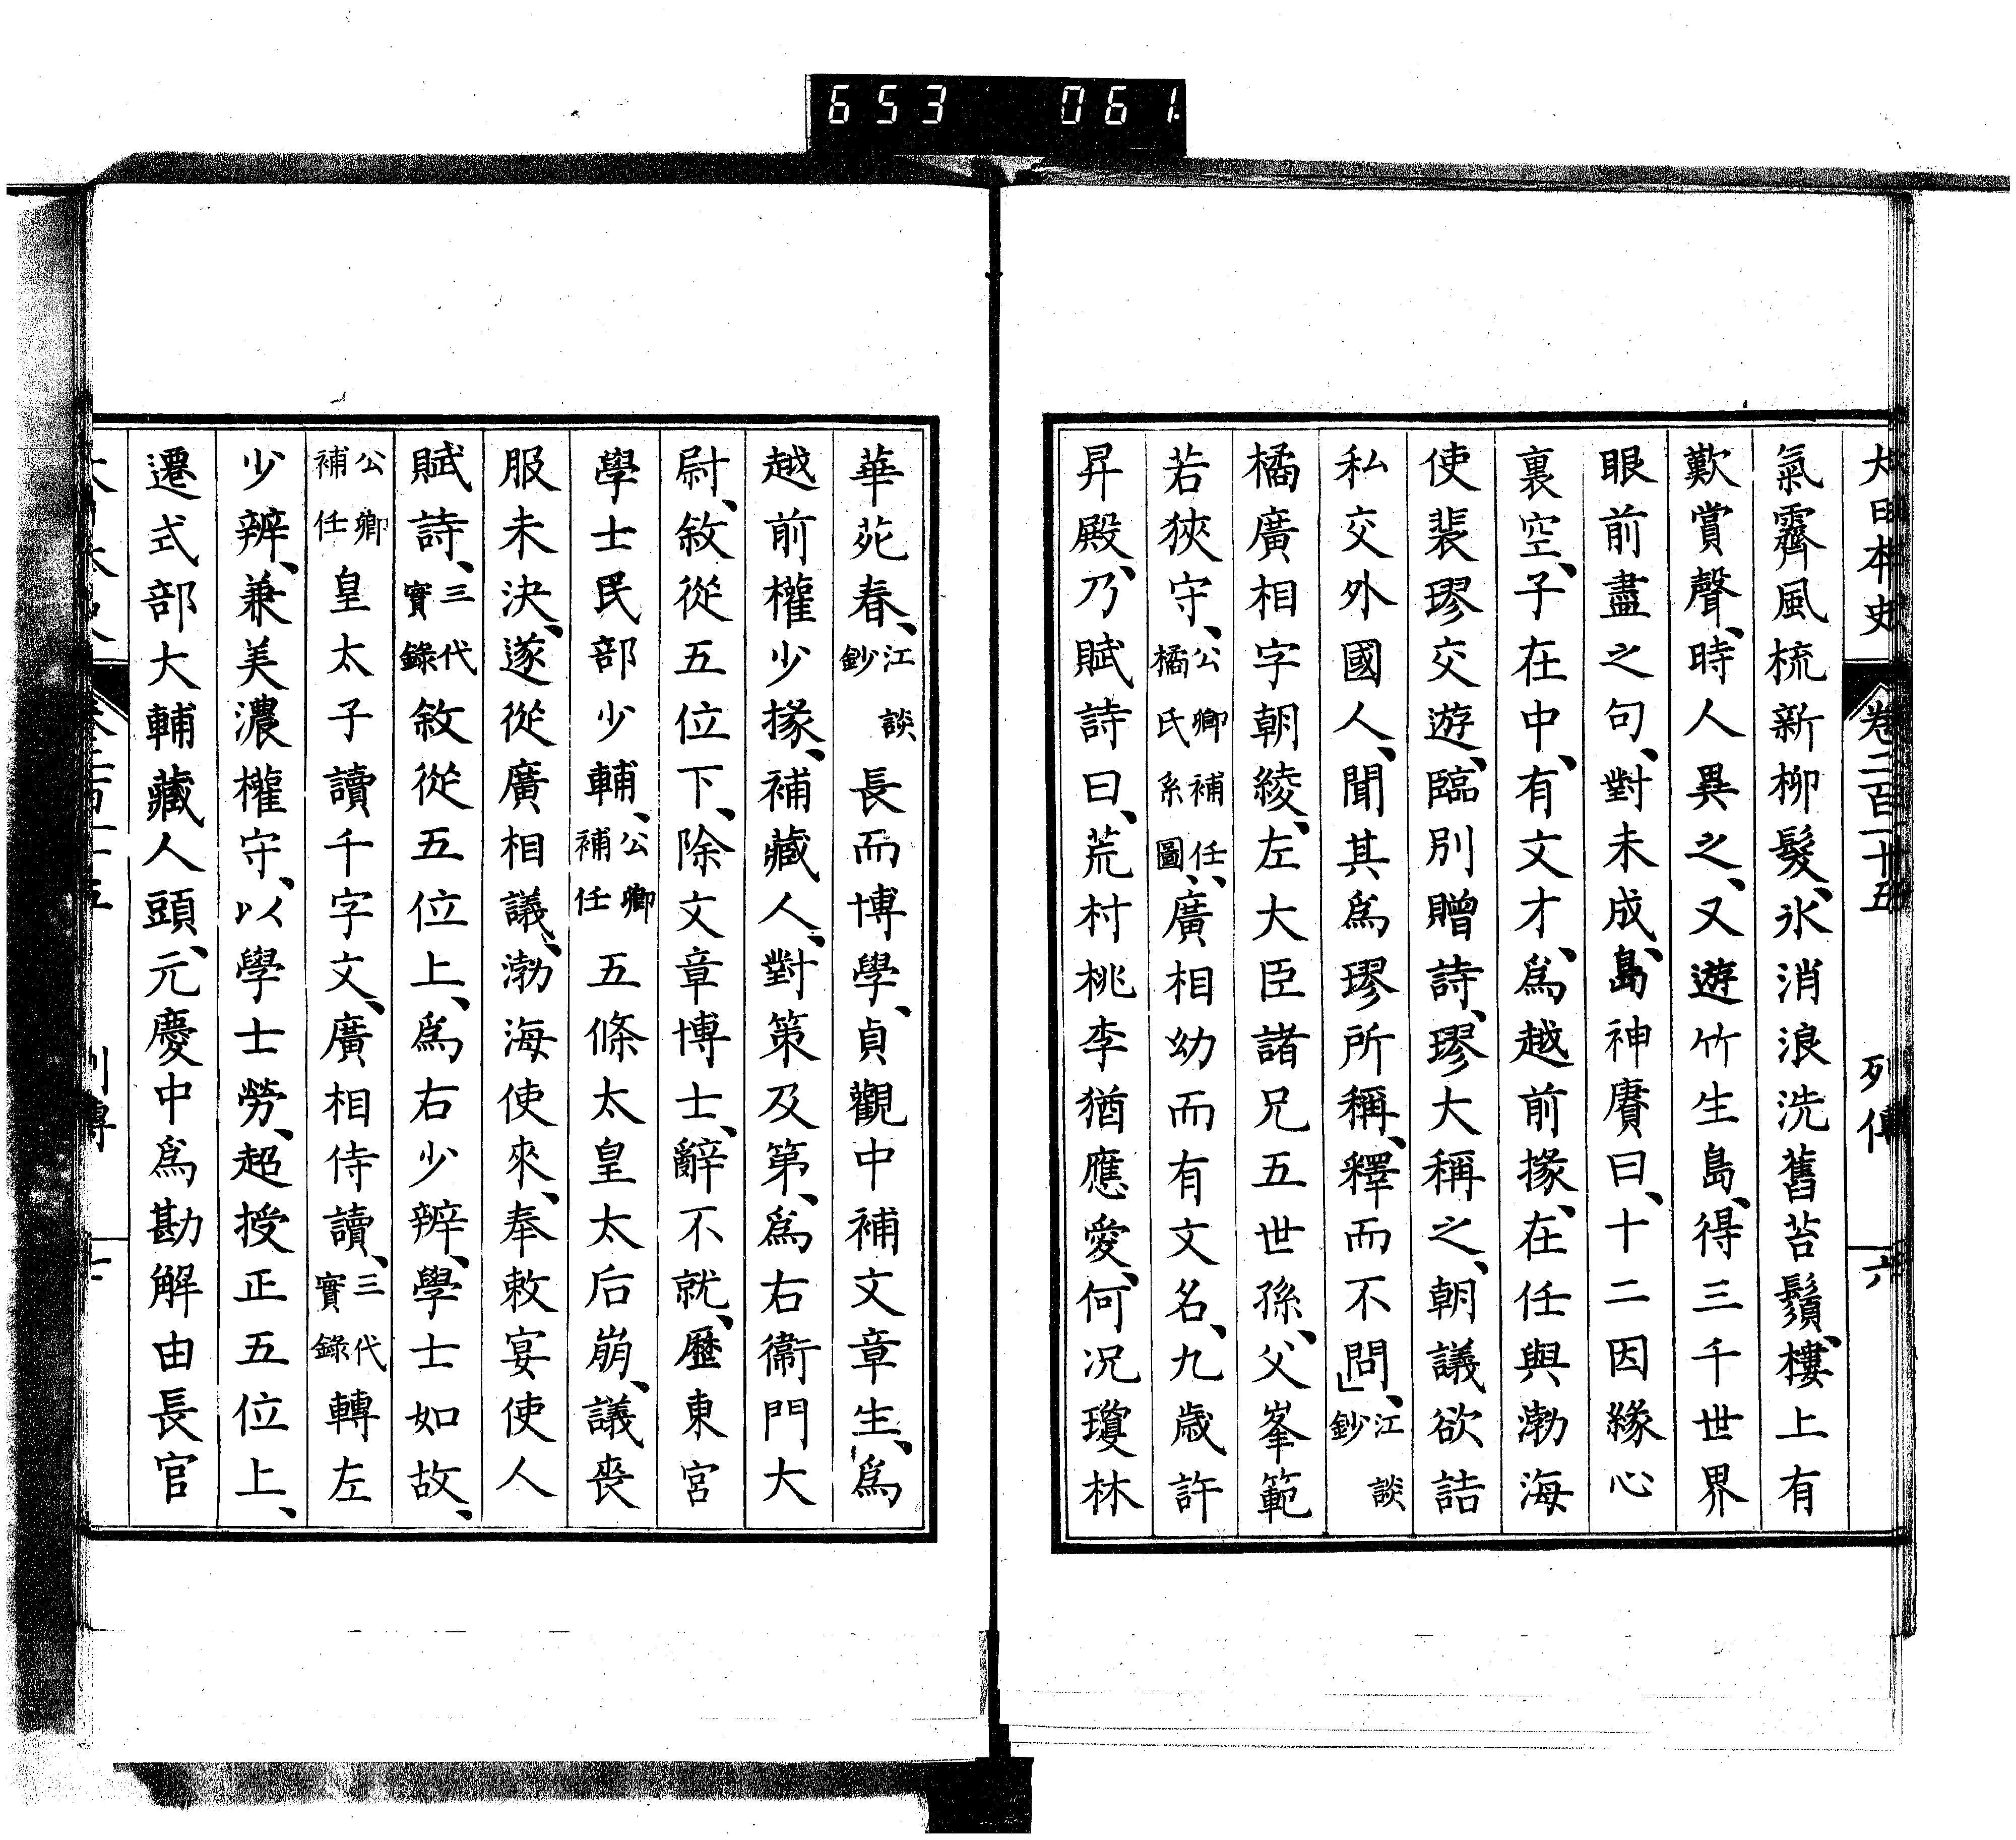 653 061
大日本史 卷二百一十五 列傳 六
氣霽風梳新柳髮、氷消浪洗舊苔鬚、樓上有
歎賞聲、時人異之、又遊竹生島、得三千世界
眼前盡之句、對未成、島神賡曰、十二因緣心
裏空、子在中、有文才、爲越前掾、在任與渤海
使裴璆交遊、臨別贈詩、璆大稱之、朝議欲詰
私交外國人、聞其爲璆所稱、釋而不問」、江談鈔
橘廣相字朝綾、左大臣諸兄五世孫、父峯範
若狹守、公卿補任、橘氏系圖、廣相幼而有文名、九歲許
昇殿、乃賦詩曰、荒村桃李猶應愛、何況瓊林
華苑春、江談鈔長而博學、貞觀中補文章生、爲
越前權少掾、補藏人、對策及第、爲右衞門大
尉、敘從五位下、除文章博士、辭不就、歷東宮
學士民部少輔、公卿補任五條太皇太后崩、議喪
服未決、遂從廣相議、渤海使來、奉敕宴使人
賦詩、三代實錄敘從五位上、爲右少辨、學士如故、
公卿補任皇太子讀千字文、廣相侍讀、三代實錄轉左
少辨、兼美濃權守、以學士勞、超授正五位上、
遷式部大輔藏人頭、元慶中爲勘解由長官